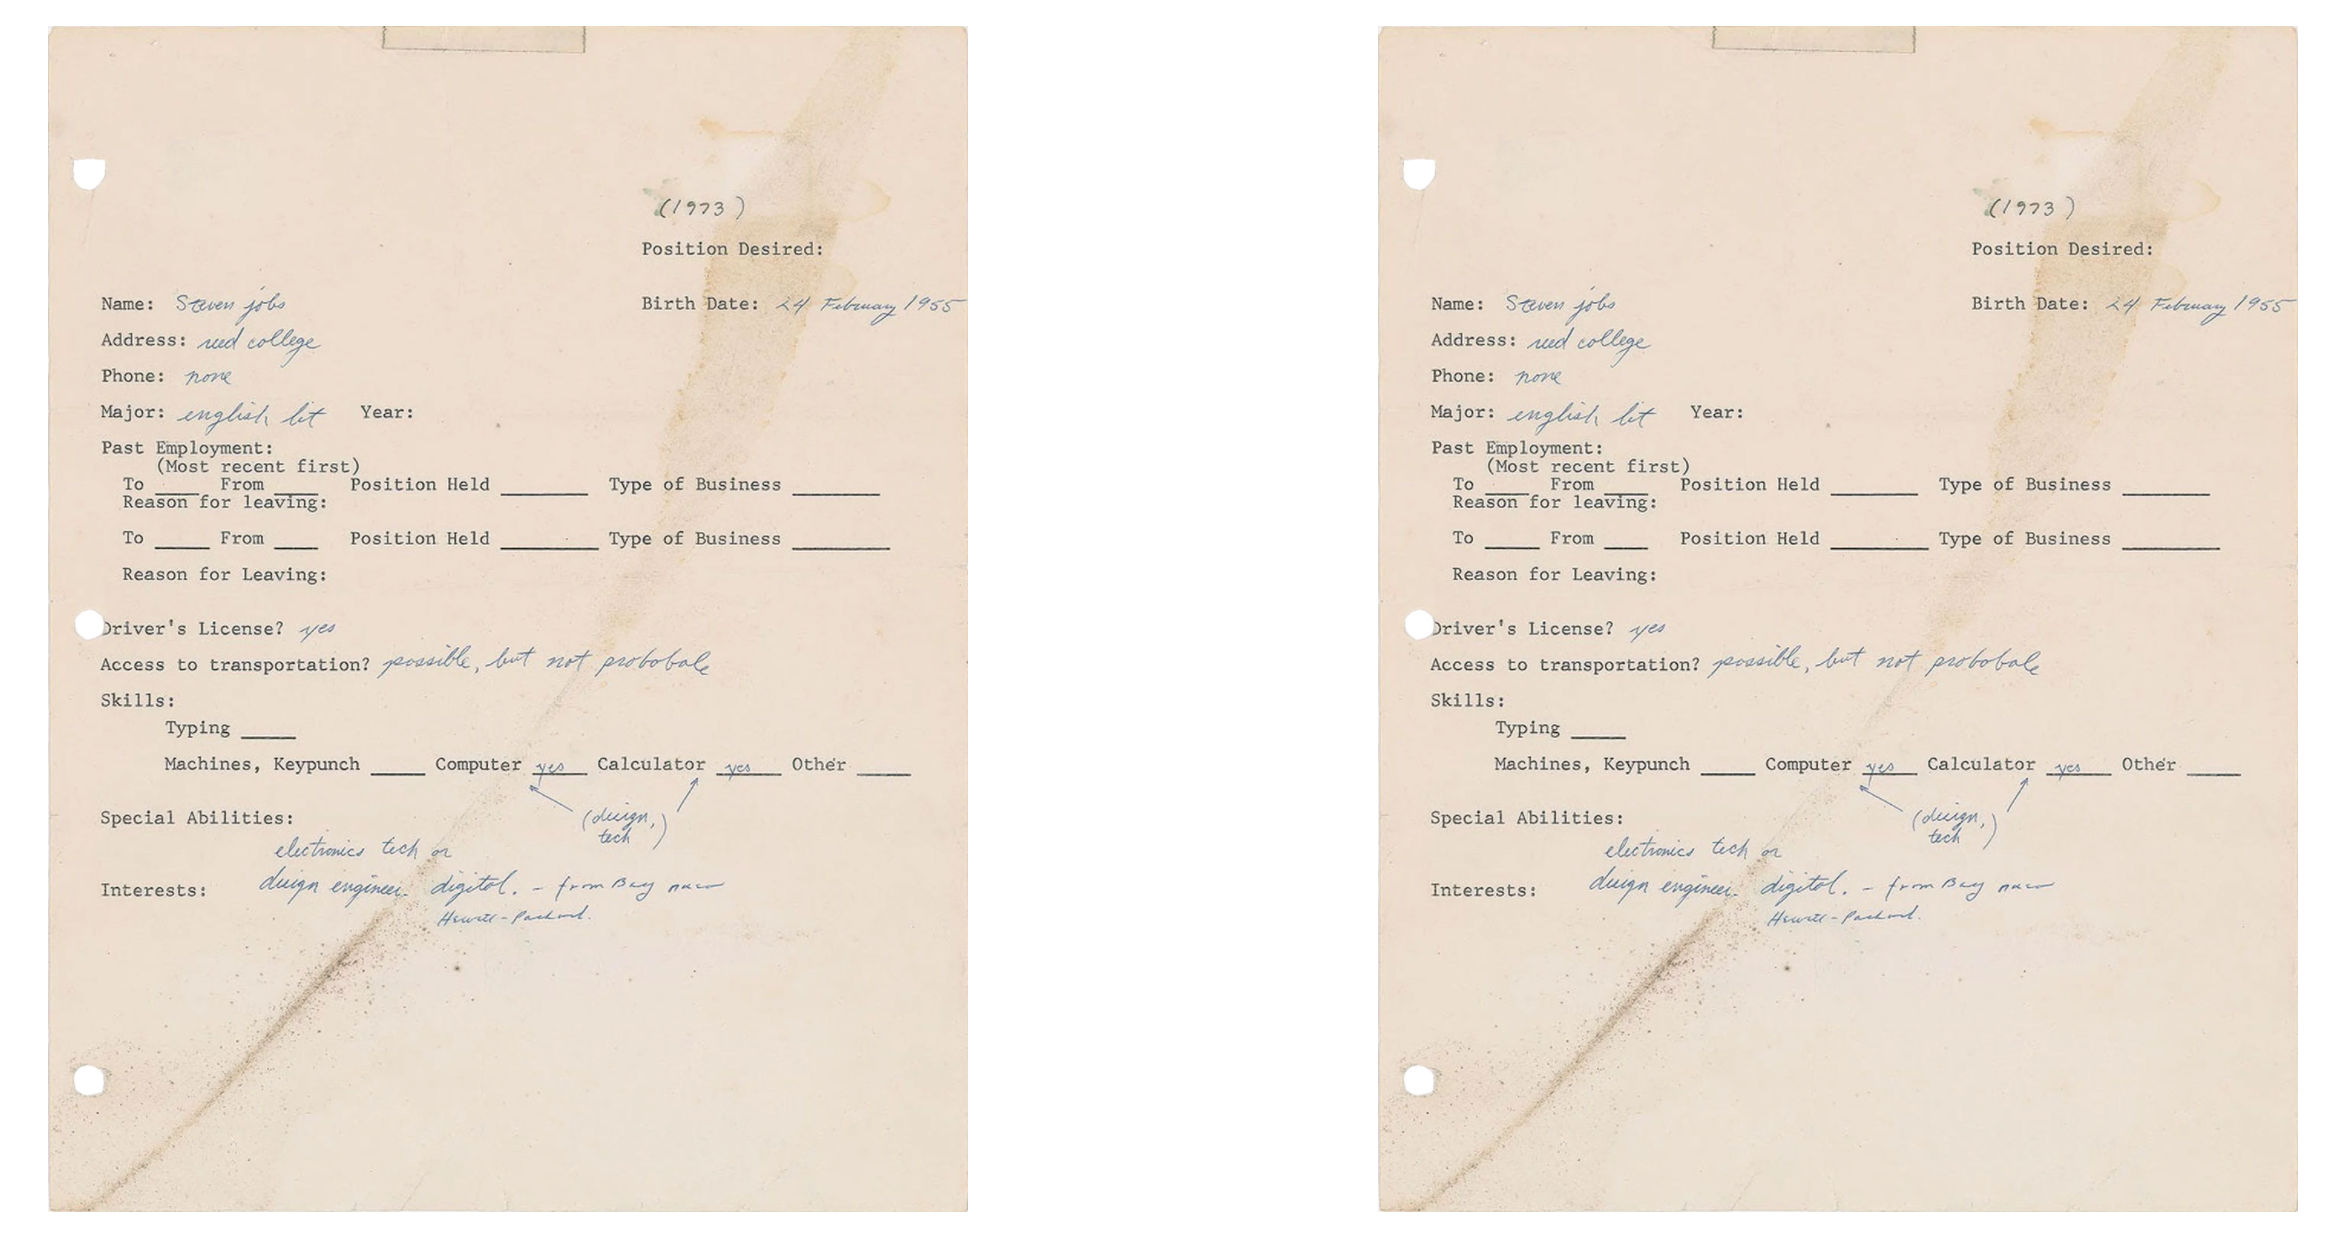 (1973)
Position Desired:
Name: Steven jobs Birth Date: 24 February 1955
Address: reed college
Phone: none
Major: english lit Year:
Past Employment:
(Most recent first)
To ____ From ____ Position Held ________ Type of Business ________
Reason for leaving:
To _____ From ____ Position Held _________ Type of Business _________
Reason for Leaving:
Driver's License? yes
Access to transportation? possible, but not probobale
Skills:
Typing _____
Machines, Keypunch _____ Computer yes Calculator yes Other _____
Special Abilities: (design,
tech)
electronics tech or
Interests: design engineer. digital. - from Bay
Hewitt-Packard.
(1973)
Position Desired:
Name: Steven jobs Birth Date: 24 February 1955
Address: reed college
Phone: none
Major: english lit Year:
Past Employment:
(Most recent first)
To ____ From ____ Position Held ________ Type of Business ________
Reason for leaving:
To _____ From ____ Position Held _________ Type of Business _________
Reason for Leaving:
Driver's License? yes
Access to transportation? possible, but not probobale
Skills:
Typing _____
Machines, Keypunch _____ Computer yes Calculator yes Other _____
Special Abilities: (design,
tech)
electronics tech or
Interests: design engineer. digital. - from Bay
Hewitt-Packard.